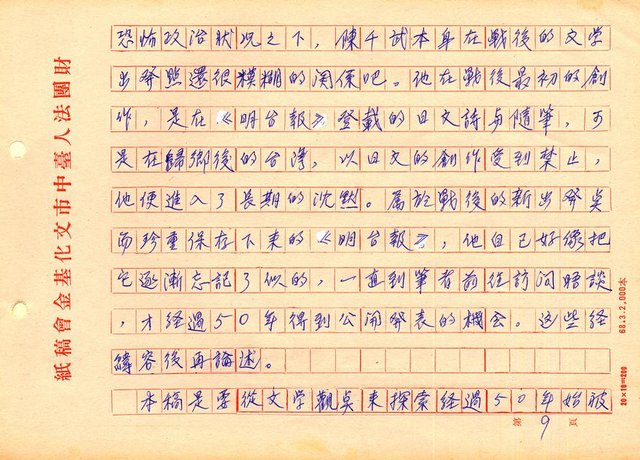 恐怖政治狀況之下，陳千武本身在戰後的文学
出発點還很模糊的関係吧。他在戰後最初的創
作，是在《明台報》登載的日文詩与隨筆，可
是在歸鄉後的台湾，以日文的創作受到禁止，
他便進入了長期的沈默。屬於戰後的新出発奌
而珍重保存下来的《明台報》，他自己好像把
它逐漸忘記了似的，一直到筆者前往訪问晤談
，才経過50年得到公開発表的機会。這些経
緯容後再論述。
本稿是要從文学觀奌来探索経過50年始被
財團法人臺中市文化基金會稿紙
68.3.2,000本
20×10=200
第9頁